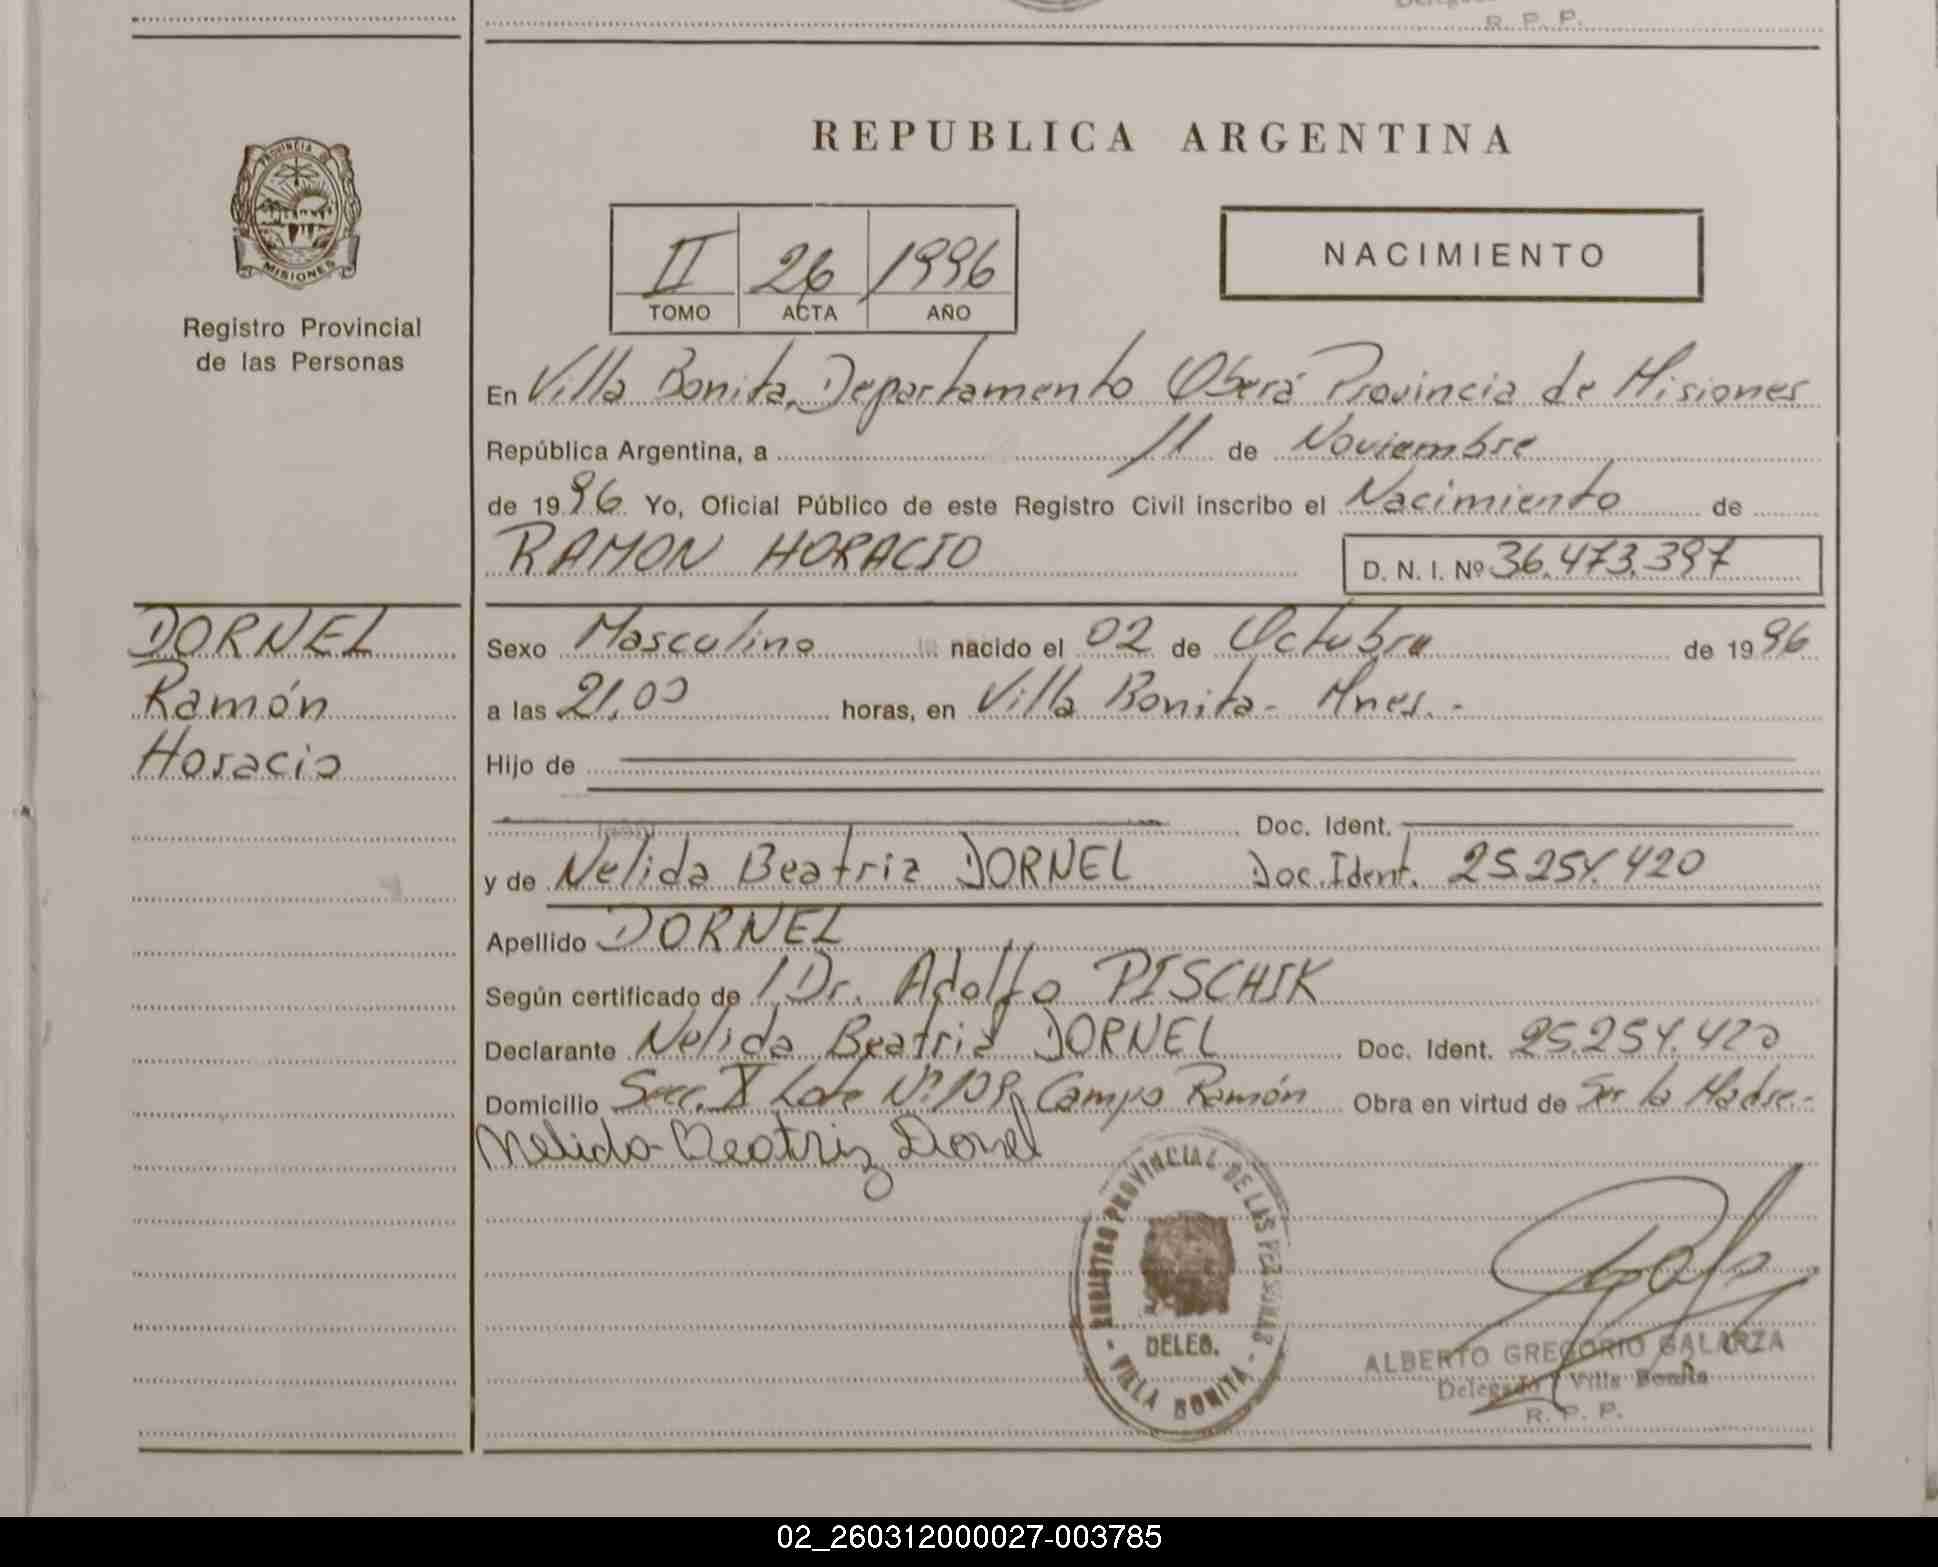 R. P. P.
PROVINCIA DE
MISIONES
Registro Provincial
de las Personas
DORNEL
Ramón
Horacio
REPUBLICA ARGENTINA
II 26 1996
TOMO ACTA AÑO
NACIMIENTO
En Villa Bonita, Departamento Oberá Provincia de Misiones
República Argentina, a 11 de Noviembre
de 1996. Yo, Oficial Público de este Registro Civil inscribo el Nacimiento de
RAMON HORACIO D. N. I. Nº 36.473.397
Sexo Masculino nacido el 02 de Octubre de 1996
a las 21,00 horas, en Villa Bonita - Mnes. -
Hijo de
Doc. Ident.
y de Nelida Beatriz DORNEL Doc. Ident. 25.254.420
Apellido DORNEL
Según certificado de / Dr. Adolfo PISCHIK
Declarante Nelida Beatriz DORNEL Doc. Ident. 25.254.420
Domicilio Secc. X Lote Nº 109, Campo Ramón Obra en virtud de Ser la Madre.-
Nelida Beatriz Dornel
REGISTRO PROVINCIAL DE LAS PERSONAS
DELEG.
- VILLA BONITA -
ALBERTO GREGORIO GALARZA
Delegado Villa Bonita
R. P. P.
02_260312000027-003785